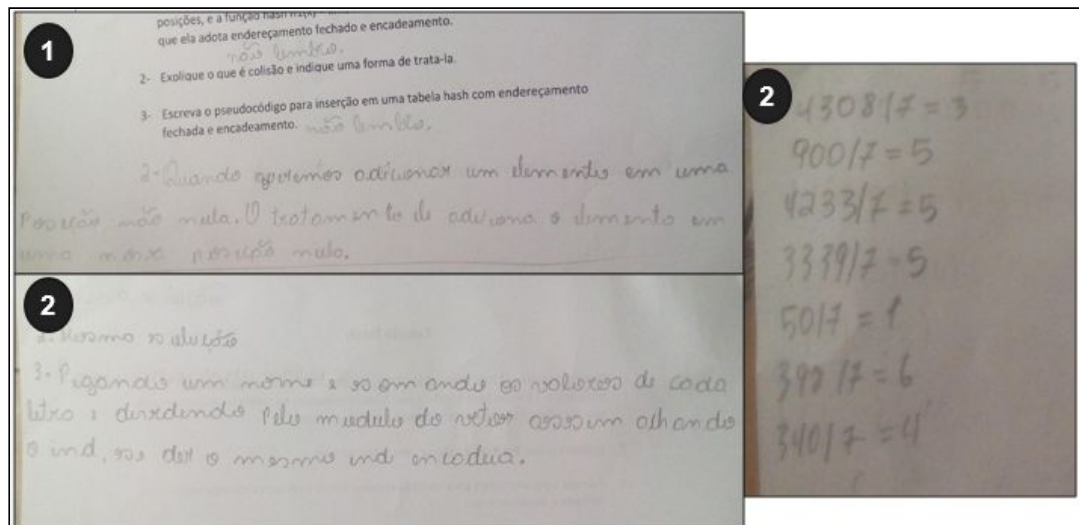 1
posições, e a função hash
que ela adota endereçamento fechado e encadeamento.
não lembro.
2- Explique o que é colisão e indique uma forma de trata-la.
3- Escreva o pseudocódigo para inserção em uma tabela hash com endereçamento
fechada e encadeamento. não lembro.
2- Quando queremos adicionar um elemento em uma
Posição não nula. O tratamento de adiciona o elemento em
uma nova posição nula.
2
Mesmo solução
3- Pegando um nome e somando os valores de cada
letra e dividindo pelo modulo do vetor assim achando
o ind, se der o mesmo ind encadeia.
2
4308/7 = 3
900/7 = 5
4233/7 = 5
3339/7 = 5
50/7 = 1
392/7 = 6
340/7 = 4